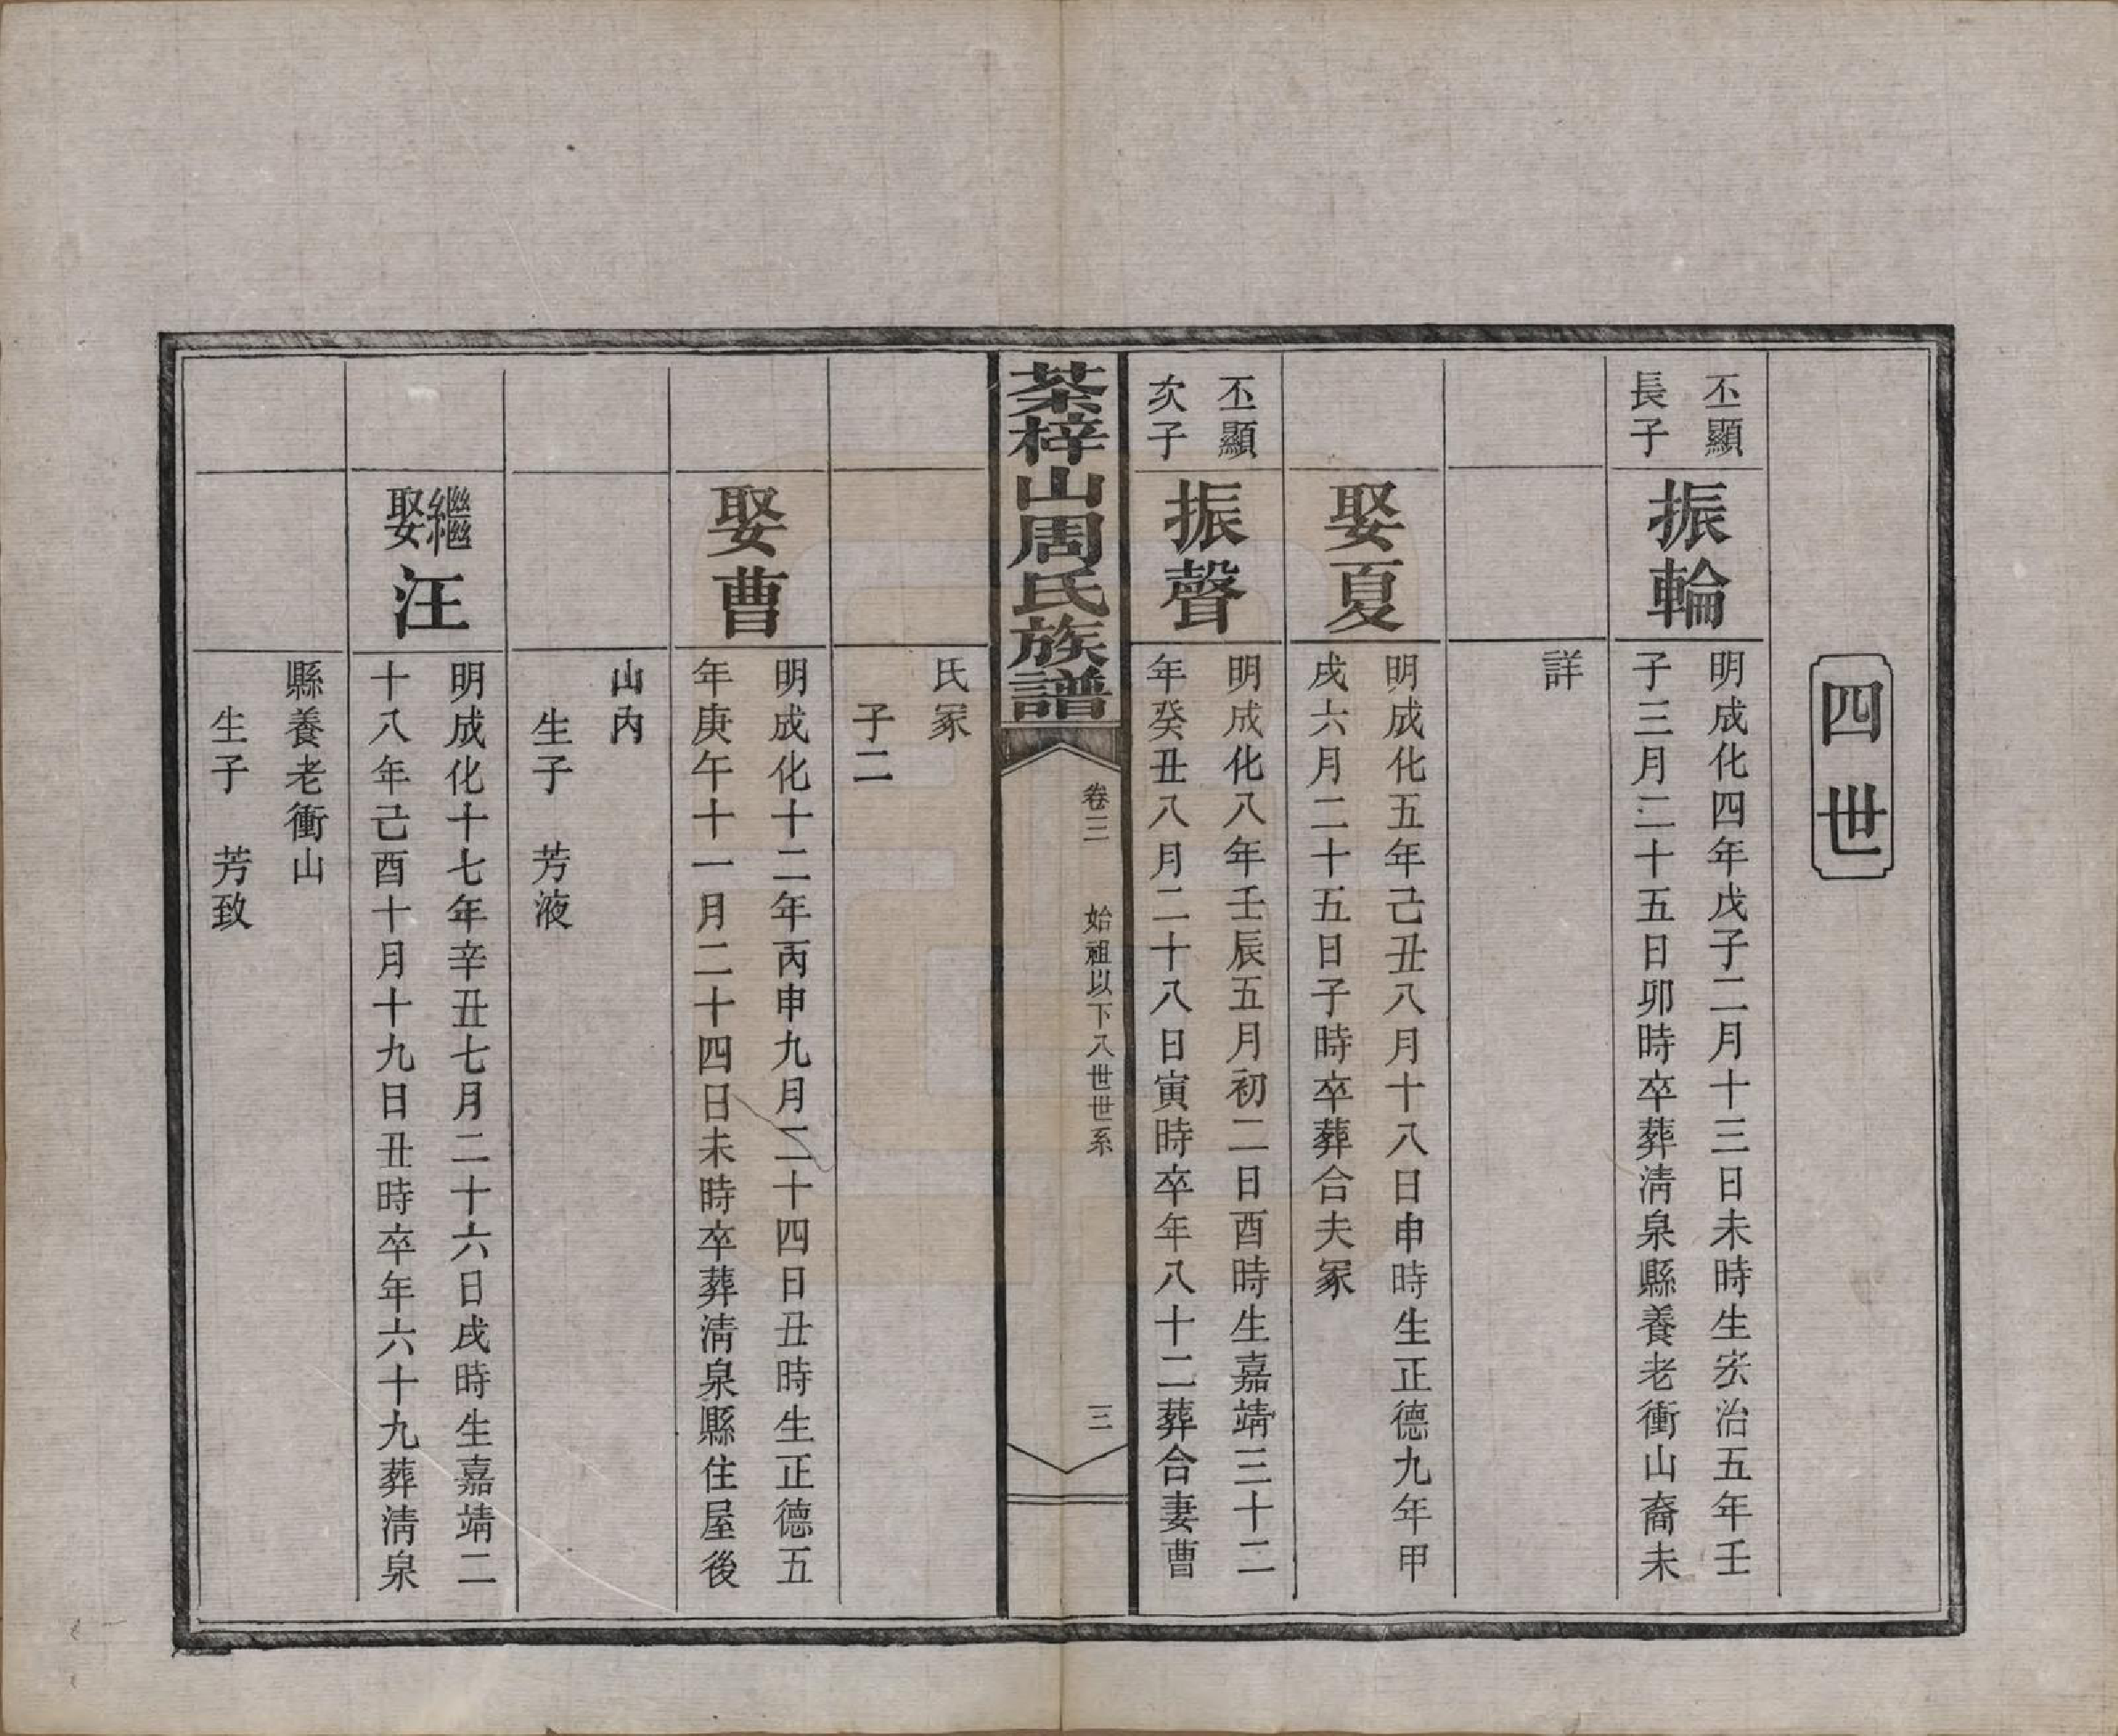 四世
丕顯
長子
振輪
明成化四年戊子二月十三日未時生宏治五年壬
子三月二十五日卯時卒葬淸泉縣養老衝山裔未
詳
娶夏
明成化五年己丑八月十八日申時生正德九年甲
戌六月二十五日子時卒葬合夫冢
丕顯
次子
振聲
明成化八年壬辰五月初二日酉時生嘉靖三十二
年癸丑八月二十八日寅時卒年八十二葬合妻曹
茶梓山周氏族譜
卷三 始祖以下八世世系
三
氏冢
子二
娶曹
明成化十二年丙申九月二十四日丑時生正德五
年庚午十一月二十四日未時卒葬淸泉縣住屋後
山內
生子 芳液
繼娶汪
明成化十七年辛丑七月二十六日戌時生嘉靖二
十八年己酉十月十九日丑時卒年六十九葬淸泉
縣養老衝山
生子 芳致